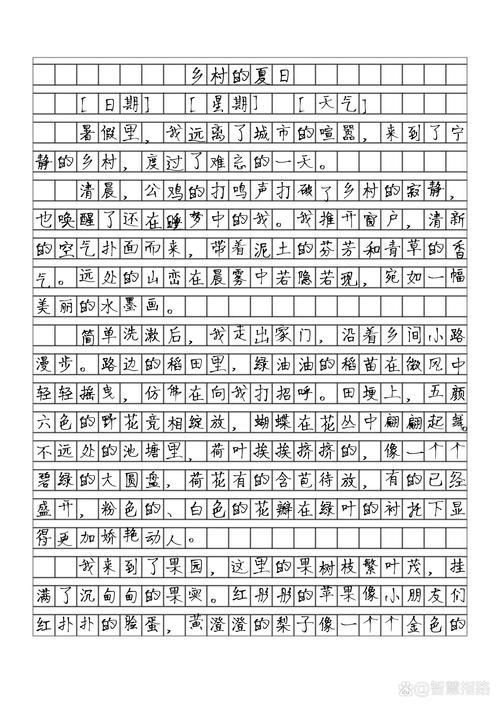 乡村的夏日
[日期] [星期] [天气]
暑假里，我远离了城市的喧嚣，来到了宁
静的乡村，度过了难忘的一天。
清晨，公鸡的打鸣声打破了乡村的寂静，
也唤醒了还在睡梦中的我。我推开窗户，清新
的空气扑面而来，带着泥土的芬芳和青草的香
气。远处的山峦在晨雾中若隐若现，宛如一幅
美丽的水墨画。
简单洗漱后，我走出家门，沿着乡间小路
漫步。路边的稻田里，绿油油的稻苗在微风中
轻轻摇曳，仿佛在向我打招呼。田埂上，五颜
六色的野花竞相绽放，蝴蝶在花丛中翩翩起舞。
不远处的池塘里，荷叶挨挨挤挤的，像一个个
碧绿的大圆盘，荷花有的含苞待放，有的已经
盛开，粉色的、白色的花瓣在绿叶的衬托下显
得更加娇艳动人。
我来到了果园，这里的果树枝繁叶茂，挂
满了沉甸甸的果实。红彤彤的苹果像小朋友们
红扑扑的脸蛋，黄澄澄的梨子像一个个金色的
智慧指路